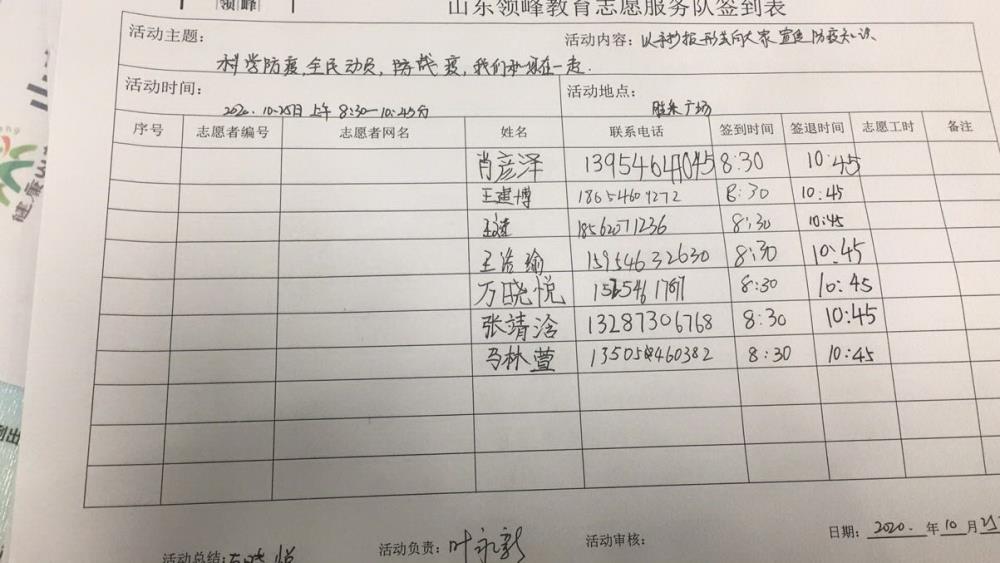 领峰
山东领峰教育志愿服务队签到表
活动主题:
活动内容: 以手抄报形式向大家宣传防疫知识
科学防疫,全民动员,防战疫,我们和你在一起.
活动时间:
2020.10.25日上午 8:30—10:45分
活动地点:
胜东广场
序号 志愿者编号 志愿者网名 姓名 联系电话 签到时间 签退时间 志愿工时 备注
肖彦泽 8:30 10:45
王建博 18654609272 8:30 10:45
18562071236 8:30 10:45
王浩瑜 15954632630 8:30 10:45
万晓悦 8:30 10:45
张靖浛 13287306768 8:30 10:45
马林萱 8:30 10:45
日期: 2020. 年 10 月 25
活动总结: 万晓悦 活动负责: 叶永新 活动审核: